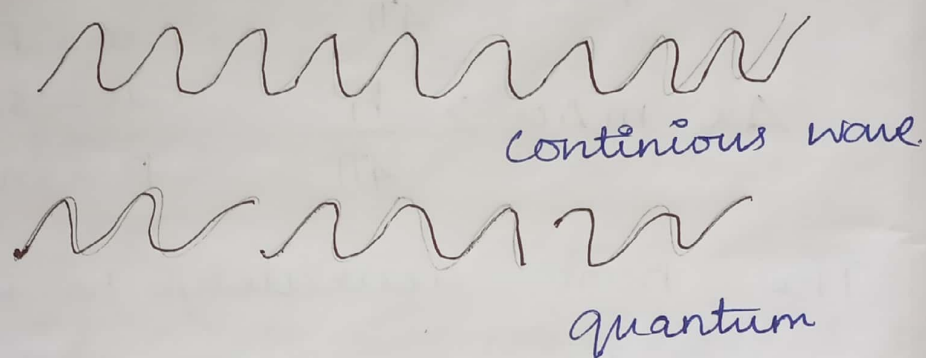 continious wave.
quantum